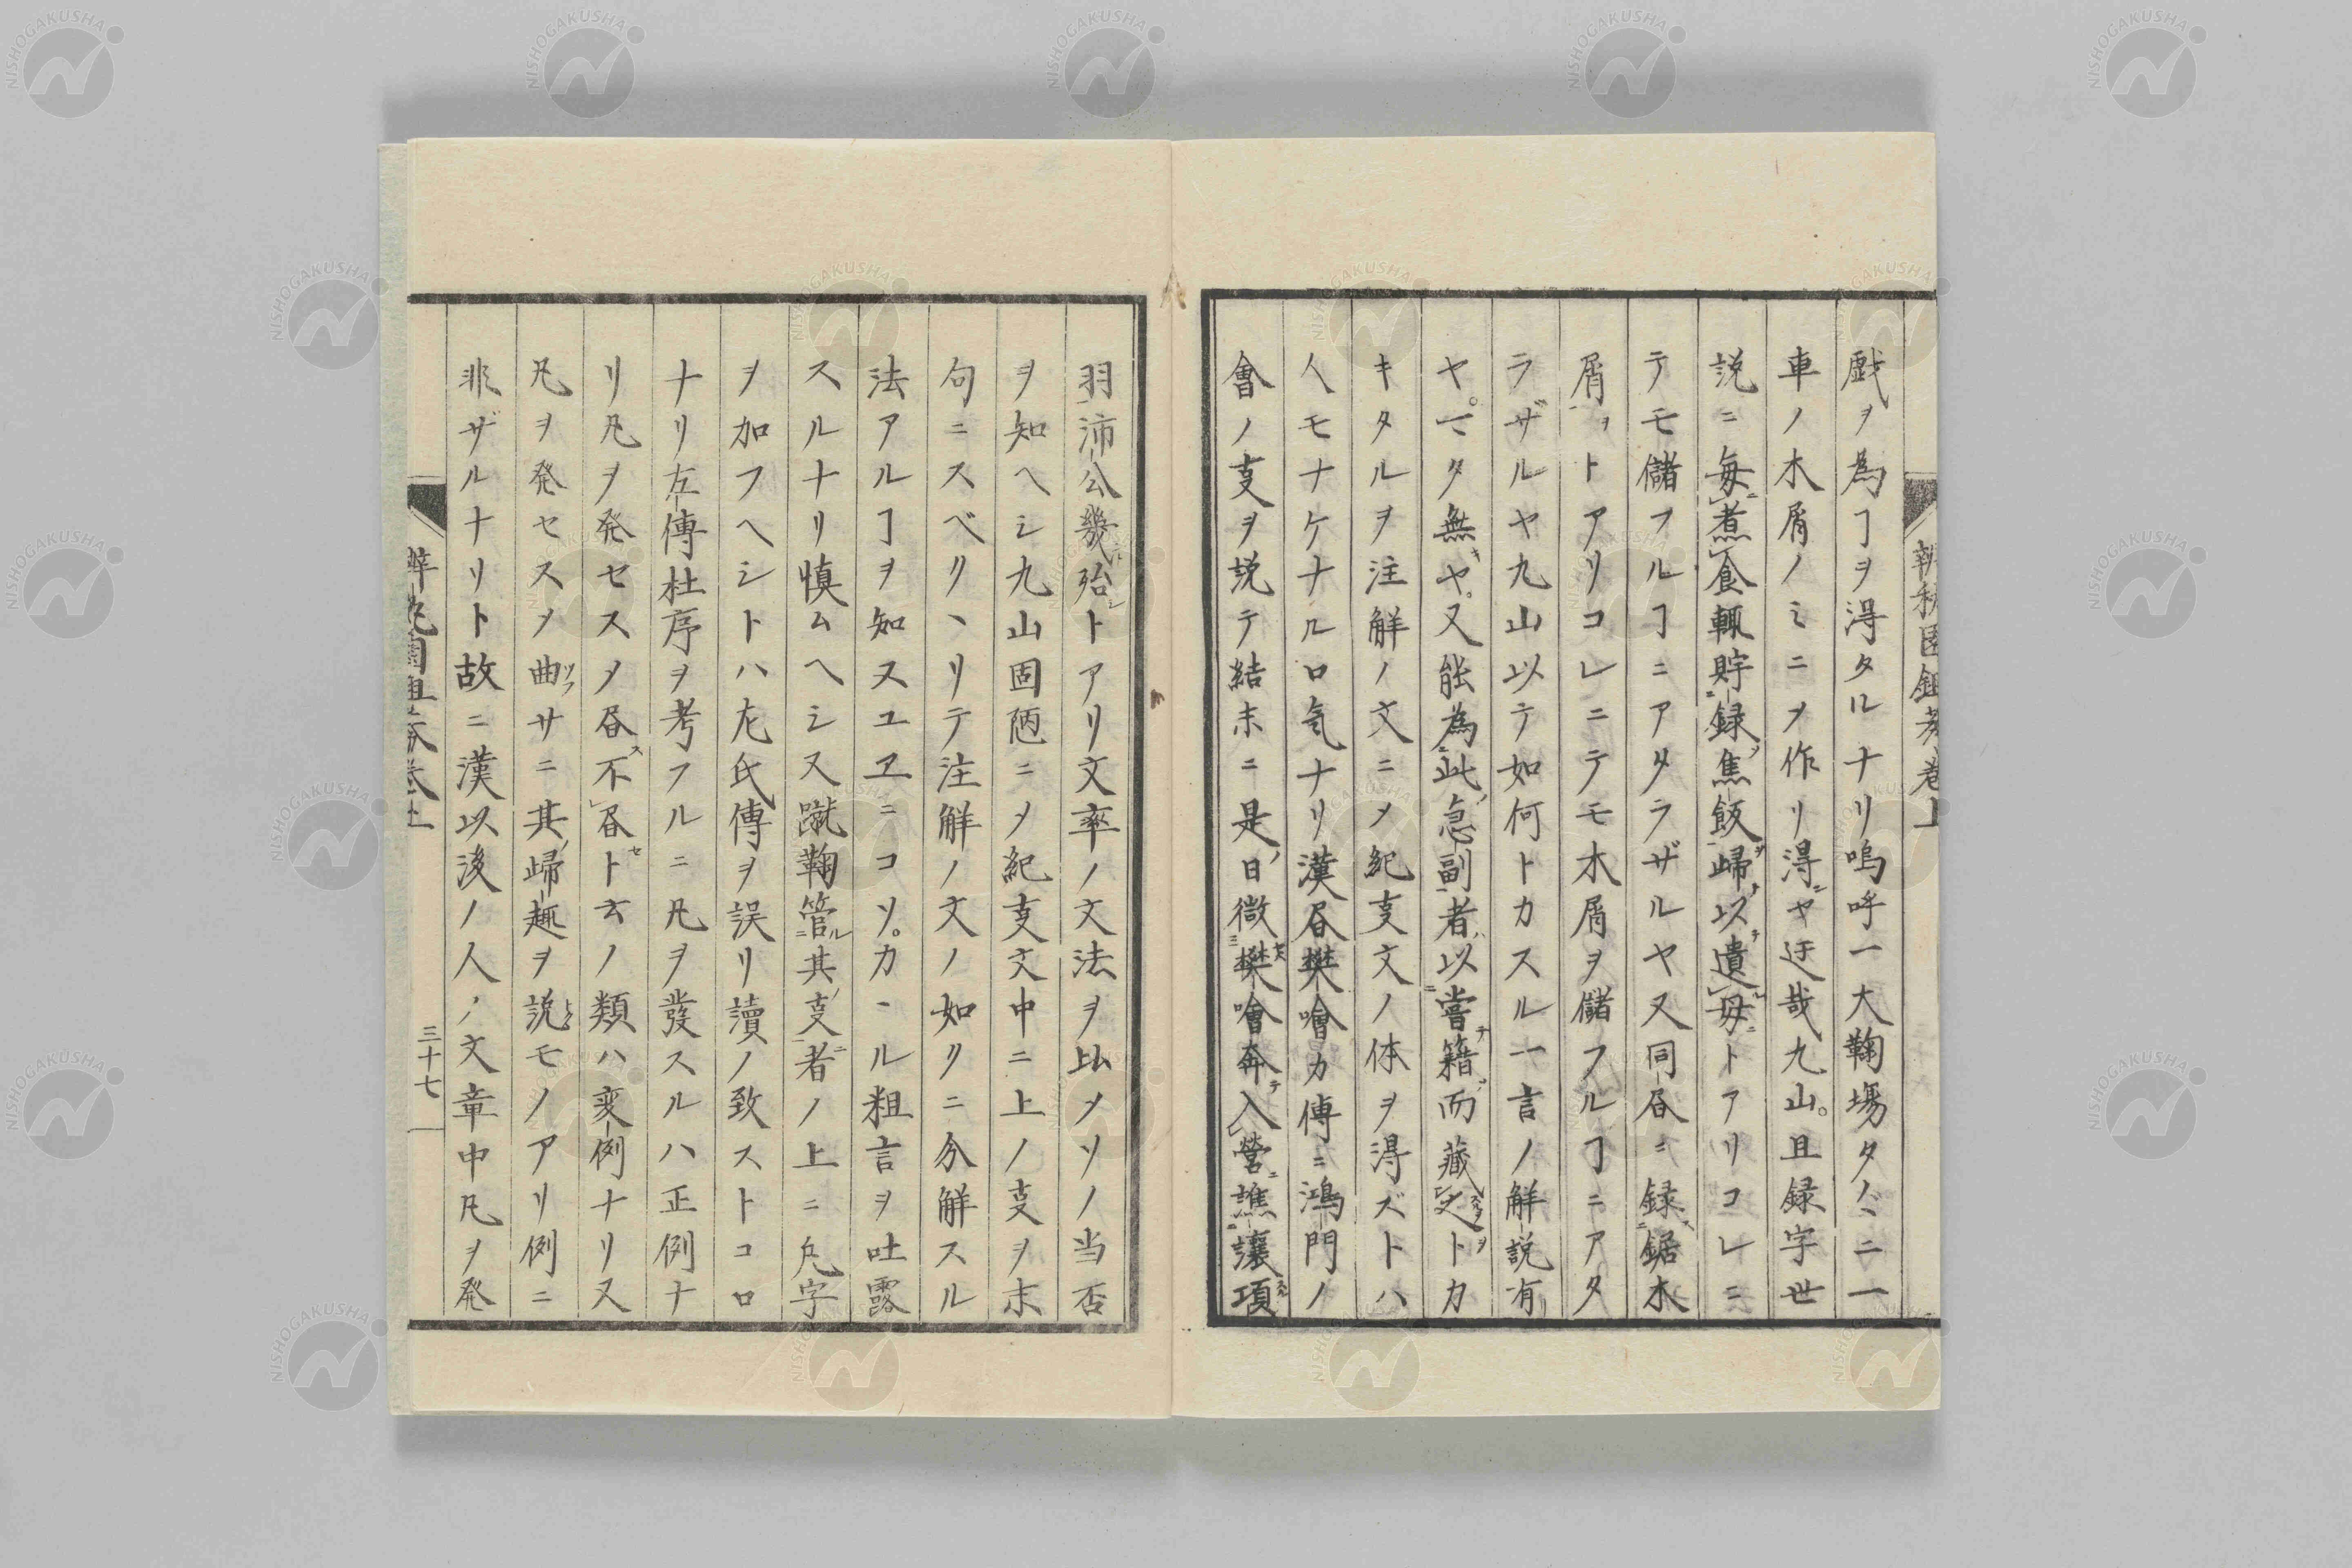 戯ヲ為ヿヲ得タルナリ嗚呼一大鞠場タヾニ一
車ノ木屑ノミニメ作リ得ニヤ迂哉九山。且録字世
説ニ毎ニ煮食輒貯録焦飯ヲ帰以遺母ニトアリコレニ
テモ儲フルヿニアタラザルヤ又同昏ニ録鋸木
屑ヲトアリコレニテモ木屑ヲ儲フルヿニアタ
ラザルヤ九山以テ如何トカスル一言ノ解説有
ヤ。マタ無キヤ。又能為此急副者以嘗テ籍而蔵之ヲトカ
キタルヲ注解ノ文ニメ紀支文ノ体ヲ得ズトハ
人モナケナルロ気ナリ漢昏樊噲カ傳ニ鴻門ノ
會ノ支ヲ説テ結末ニ是ノ日微樊噲奔テ入営ニ譙譲項
羽沛公幾殆トアリ文率ノ文法ヲ以メソノ当否
ヲ知ヘシ九山固陋ニメ紀支文中ニ上ノ支ヲ末
句ニスベリヽリテ注解ノ文ノ如クニ分解スル
法アルヿヲ知ヌユヱニコソ。カヽル粗言ヲ吐露
スルナリ慎ムヘシ又蹴鞠管ル其ノ支ニ者ノ上ニ凡字
ヲ加フヘシトハ左氏傳ヲ誤リ讀ノ致ストコロ
ナリ左傳杜序ヲ考フルニ凡ヲ發スルハ正例ナ
リ凡ヲ発セスメ昏ス不昏セト云ノ類ハ変例ナリ又
凡ヲ発セスメ曲サニ其ノ帰趣ヲ説モノアリ例ニ
非ザルナリト故ニ漢以後ノ人ノ文章中凡ヲ発
三十七
NISHOGAKUSHA